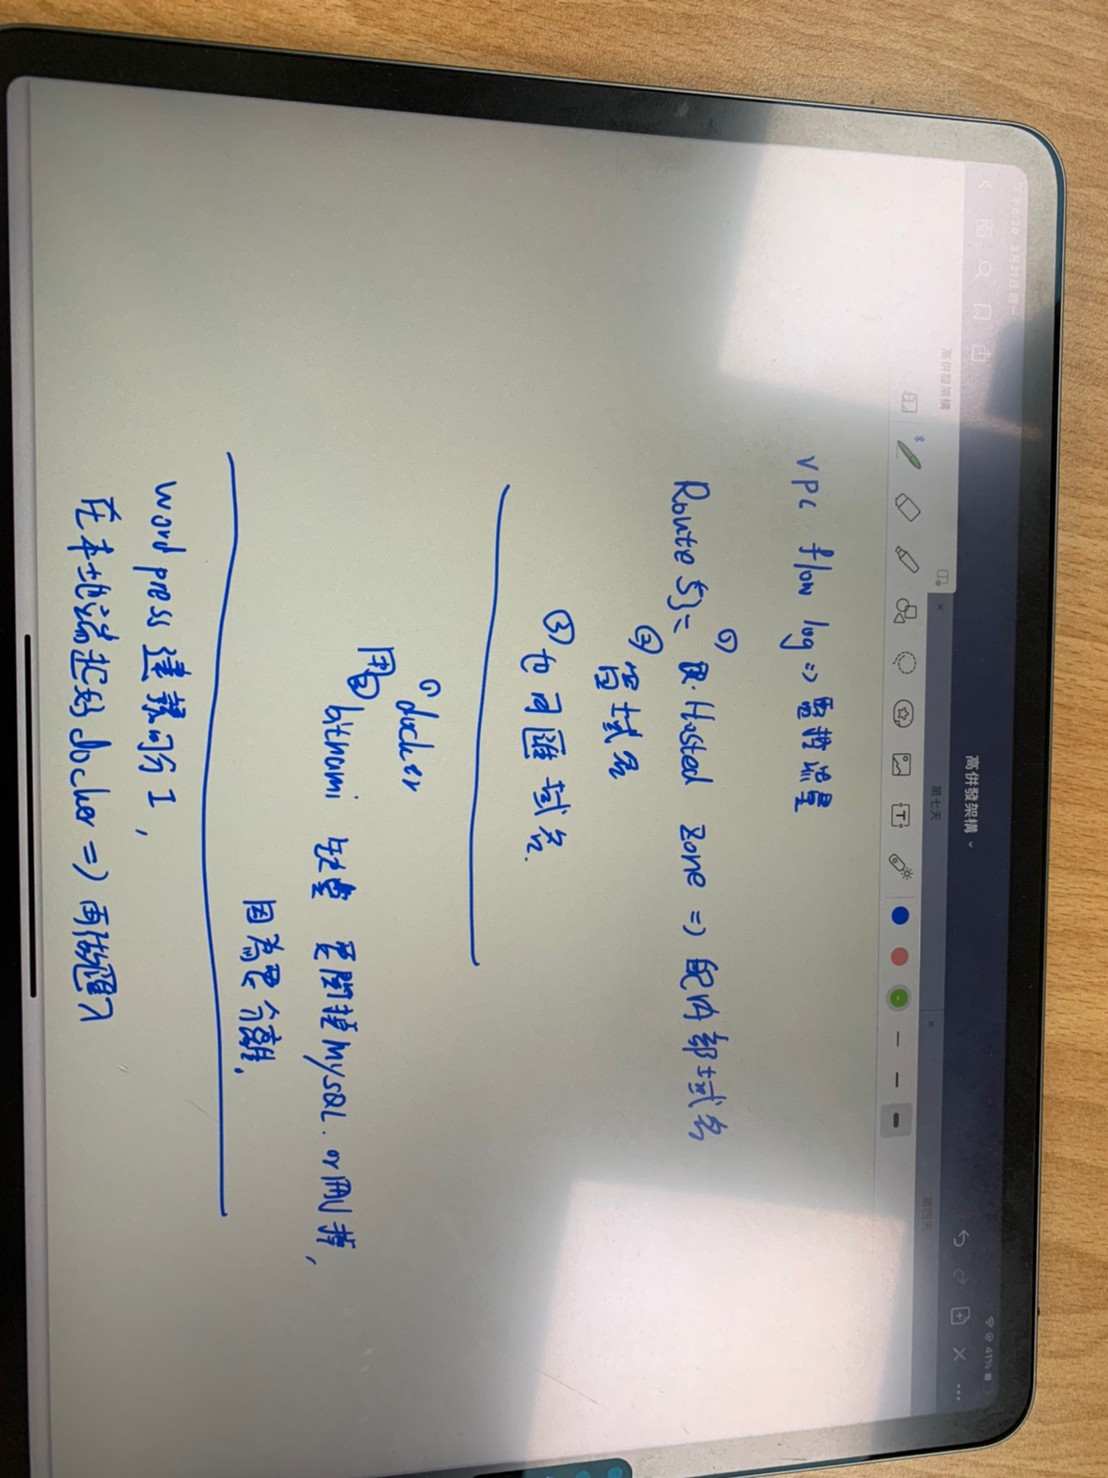 下午6:20 3月21日 週一
41%
高併發架構
高併發架構
第七天
第四天
vpc flow log => 監控流量
Route 53= ① Hosted zone => 配內部域名
② 買域名
③ 也可匯域名.
① docker
用② bitnami 缺點 要關掉MySQL. or刪掉,
因為要分離.
wordpress 建議可分工,
在本地端起好docker => 再做匯入